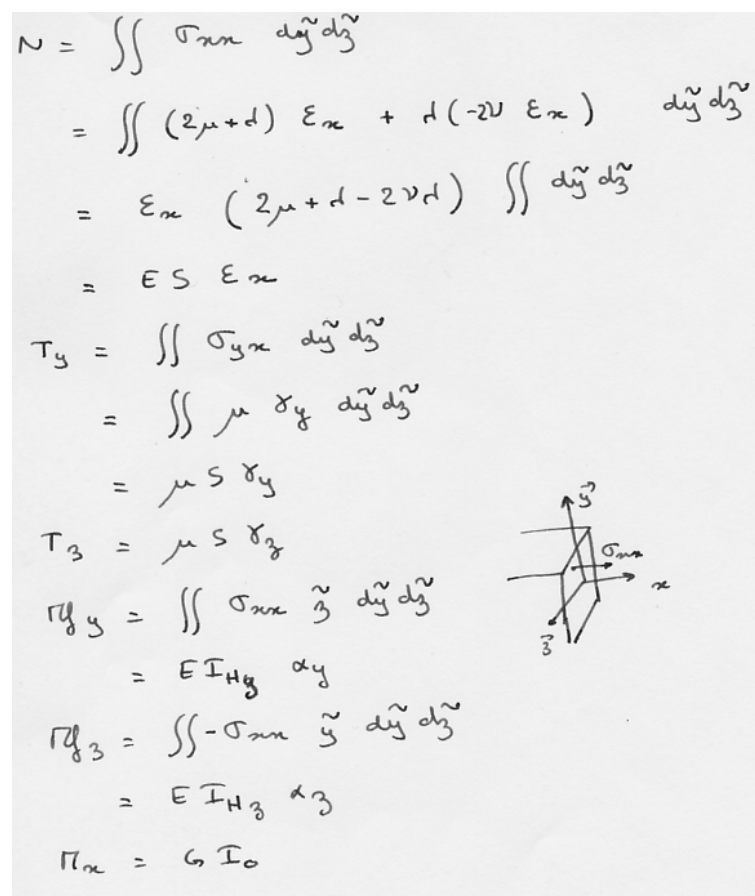 N = ∬ σxx dỹ dz̃
= ∬ (2μ+λ) εx + λ(-2ν εx) dỹ dz̃
= εx (2μ+λ-2νλ) ∬ dỹ dz̃
= E S εx
Ty = ∬ σyx dỹ dz̃
= ∬ μ γy dỹ dz̃
= μ S γy
Tz = μ S γz
Mfy = ∬ σxx z̃ dỹ dz̃
= E IHy αy
Mfz = ∬ -σxx ỹ dỹ dz̃
= E IHz αz
Mx = G Io
y⃗
σxx
x
z⃗